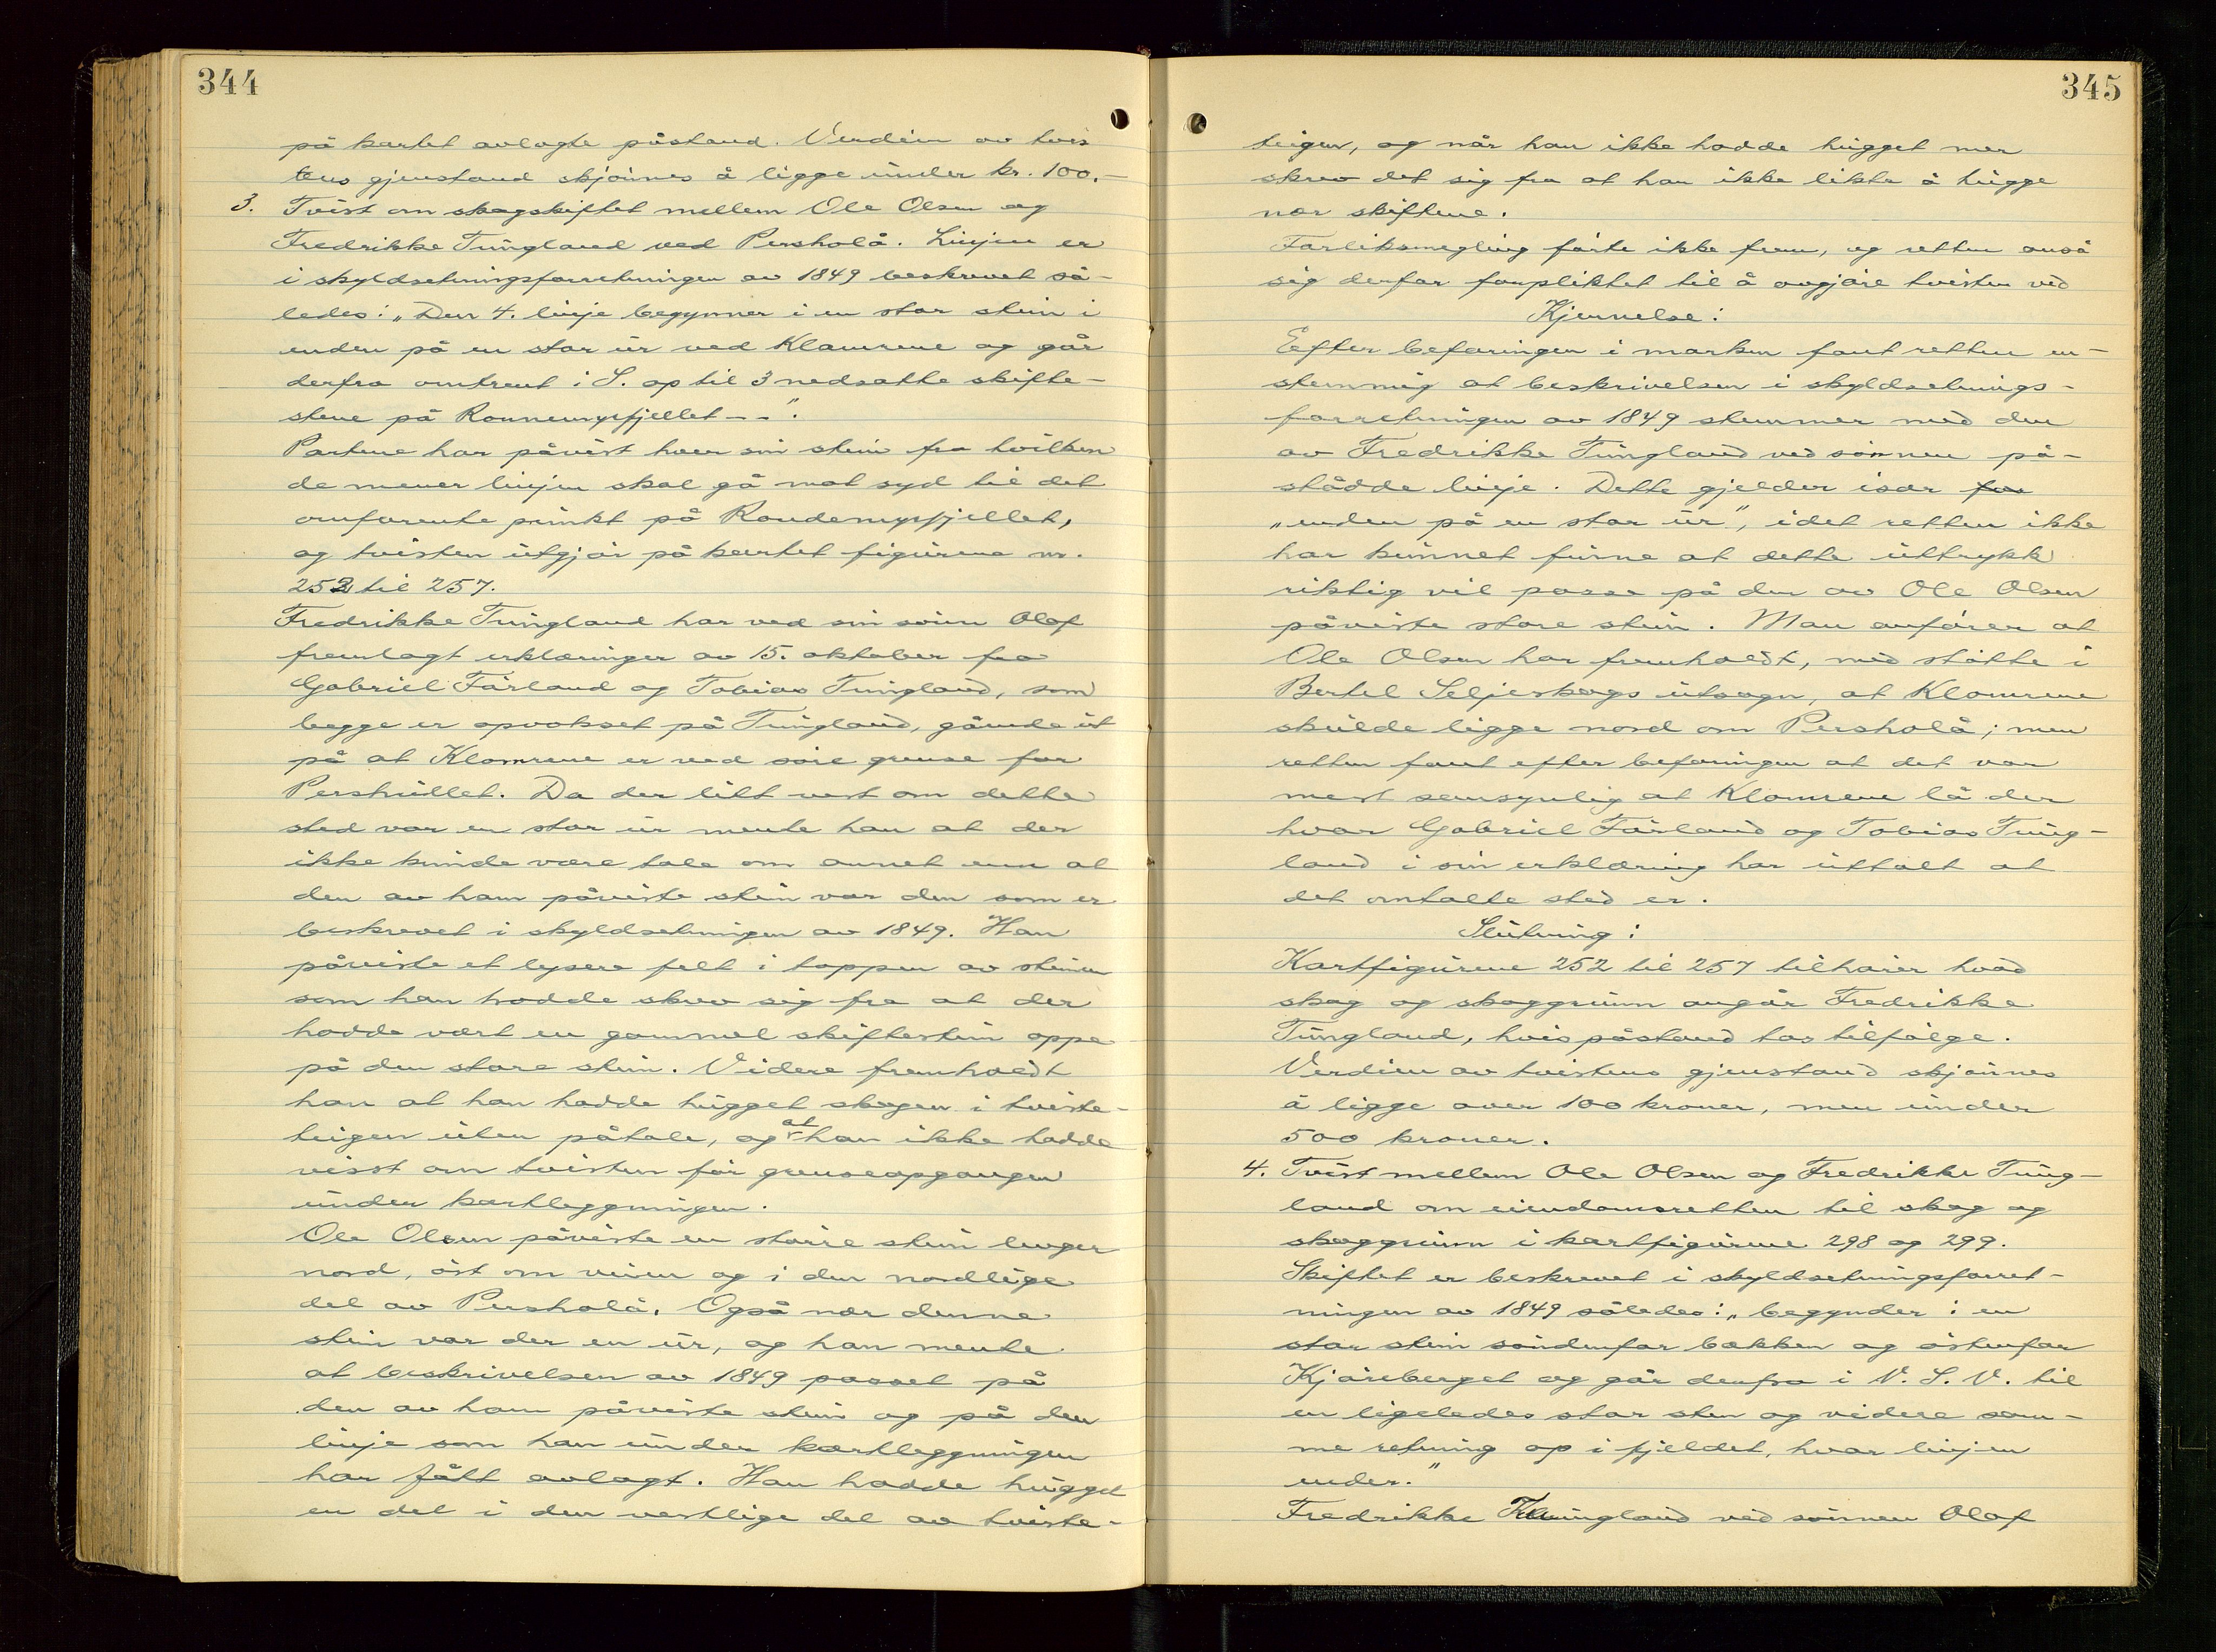 344
på kartet avlagte påstand. Verdien av tvis
tens gjenstand skjønnes å ligge under kr. 100.-
3. Tvist om skogskiftet mellem Ole Olsen og
Fredrikke Tungland ved Persholå. Linjen er
i skyldsetningsforretningen av 1849 beskrevet så-
ledes: „Den 4. linje begynner i en stor stein i
enden på en stor ur ved Klamrene og går
derfra omtrent i S. op til 3 nedsatte skifte-
stene på Ronnemyrfjellet--".
Partene har påvist hver sin stein fra hvilken
de mener linjen skal gå mot syd til det
omforente punkt på Rondemyrfjellet,
og tvisten utgjør på kartet figurene nr.
252 til 257.
Fredrikke Tungland har ved sin sønn Olaf
fremlagt erklæringer av 15. oktober fra
Gabriel Førland og Tobias Tungland, som
begge er opvokset på Tungland, gående ut
på at Klomrene er ved søre grense for
Pershullet. Da der litt vest om dette
sted var en stor ur mente han at der
ikke kunde være tale om annet enn at
den av ham påviste stein var den som er
beskrevet i skyldsetningen av 1849. Han
påviste et lysere felt i toppen av steinen
som han trodde skrev sig fra at der
hadde vært en gammel skiftestein oppe
på den store stein. Videre fremholdt
han at han hadde hugget skogen i tviste-
teigen uten påtale, og at han ikke hadde
visst om tvisten før grenseopgangen
under kartleggningen.
Ole Olsen påviste en større stein lenger
nord, øst om veien og i den nordlige
del av Persholå. Også nær denne
stein var der en ur, og han mente
at beskrivelsen av 1849 passet på
den av ham påviste stein og på den
linje som han under kartleggningen
har fått avlagt. Han hadde hugget
en del i den vestlige del av tviste-
345
teigen, og når han ikke hadde hugget mer
skrev det sig fra at han ikke likte å hugge
nær skiftene.
Forliksmegling førte ikke frem, og retten anså
sig derfor forpliktet til å avgjøre tvisten ved
Kjennelse:
Eefter befaringen i marken fant retten en-
stemmig at beskrivelsen i skyldsetnings-
forretningen av 1849 stemmer med den
av Fredrikke Tungland ved sønnen på-
stådde linje. Dette gjelder især for
„enden på en stor ur", idet retten ikke
har kunnet finne at dette uttrykk
riktig vil passe på den av Ole Olsen
påviste store stein. Man anfører at
Ole Olsen har fremholdt, med støtte i
Bertel Seljeskogs utsagn, at Klomrene
skulde ligge nord om Persholå; men
retten fant efter befaringen at det var
mest sansynlig at Klomrene lå der
hvor Gabriel Førland og Tobias Tung-
land i sin erklæring har uttalt at
det omtalte sted er.
Slutning:
Kartfigurene 252 til 257 tilhører hvad
skog og skoggrunn angår Fredrikke
Tungland, hvis påstand tas tilfølge.
Verdien av tvistens gjenstand skjønnes
å ligge over 100 kroner, men under
500 kroner.
4. Tvist mellem Ole Olsen og Fredrikke Tung-
land om eiendomsretten til skog og
skoggrunn i kartfigurene 298 og 299.
Skiftet er beskrevet i skyldsetningsforret-
ningen av 1849 således: „begynder i en
stor stein søndenfor bækken og østenfor
Kjøreberget og går derfra i V. S. V. til
en ligeledes stor sten og videre sam-
me retning op i fjeldet, hvor linjen
ender."
Fredrikke Tungland ved sønnen Olaf